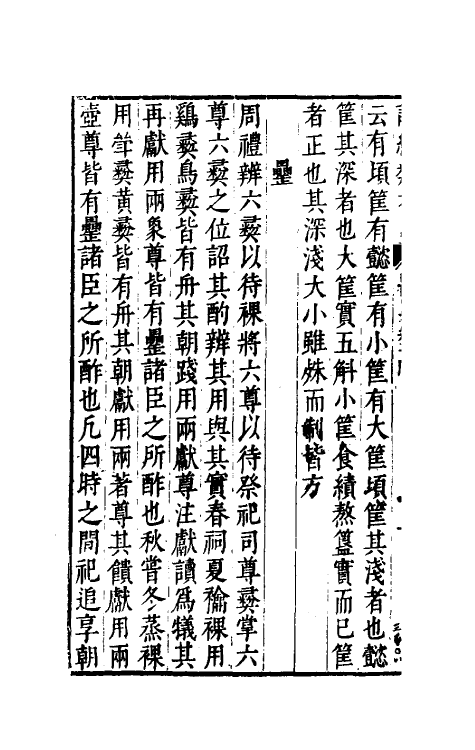 云有頃筐有懿筐有小筐有大筐頃筐其淺者也懿
筐其深者也大筐實五斛小筐食績熬簋實而已筐
者正也其深淺大小雖殊而制皆方
罍
周禮辨六彜以待祼將六尊以待祭祀司尊彜掌六
尊六彜之位詔其酌辨其用與其實春祠夏禴祼用
鷄彜鳥彜皆有舟其朝踐用兩獻尊注獻讀爲犧其
再獻用兩象尊皆有罍諸臣之所酢也秋嘗冬蒸祼
用斝彜黃彜皆有舟其朝獻用兩著尊其饋獻用兩
壺尊皆有罍諸臣之所酢也凡四時之間祀追享朝